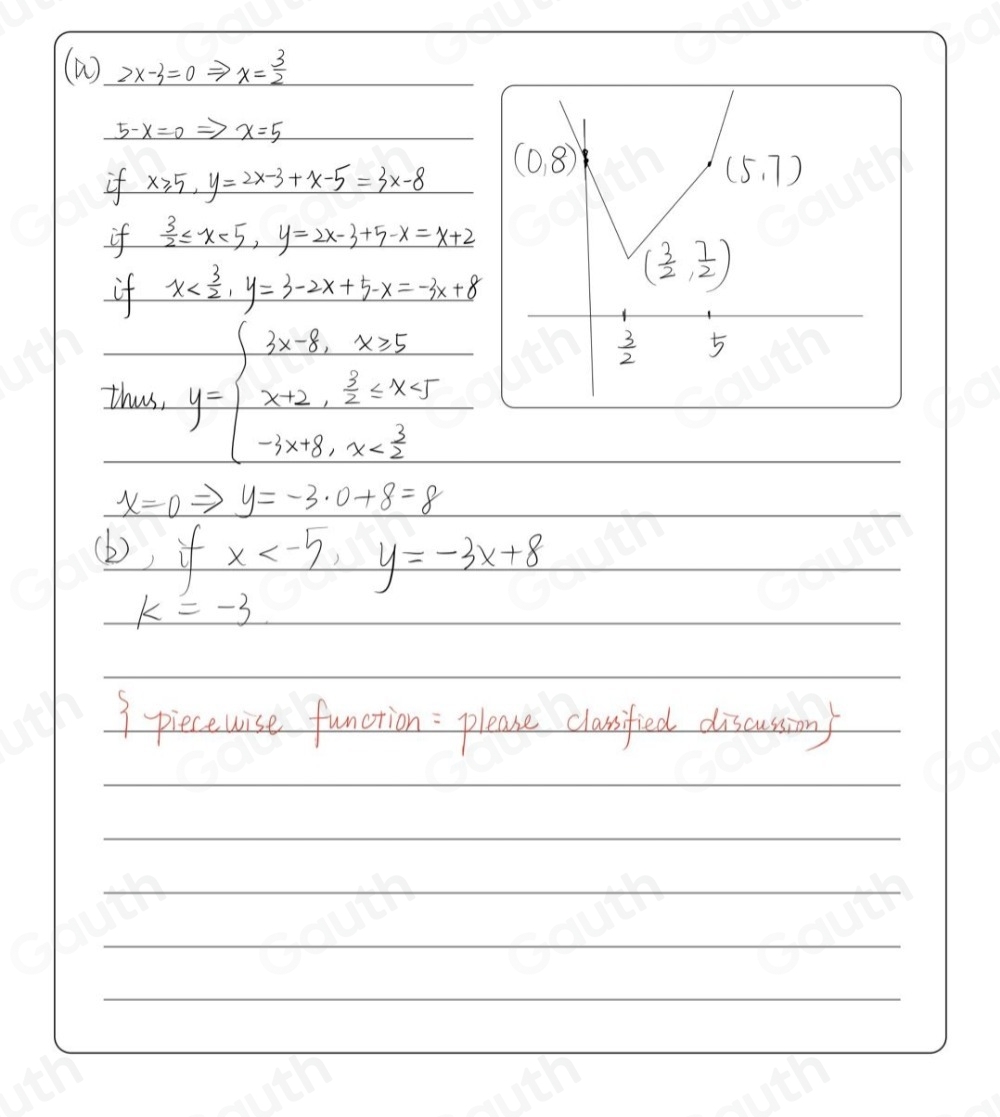 (a) 2x-3=0 ⇒ x=3/2
5-x=0 ⇒ x=5
if x≥5, y=2x-3+x-5=3x-8
if 3/2≤x<5, y=2x-3+5-x=x+2
if x<3/2, y=3-2x+5-x=-3x+8
thus, y={ 3x-8, x≥5
x+2, 3/2≤x<5
-3x+8, x<3/2
x=0 ⇒ y=-3·0+8=8
(b), if x<-5, y=-3x+8
k=-3.
{piecewise function: please classified discussion}
(0,8)
(5,7)
(3/2, 7/2)
3/2 5
Gauth